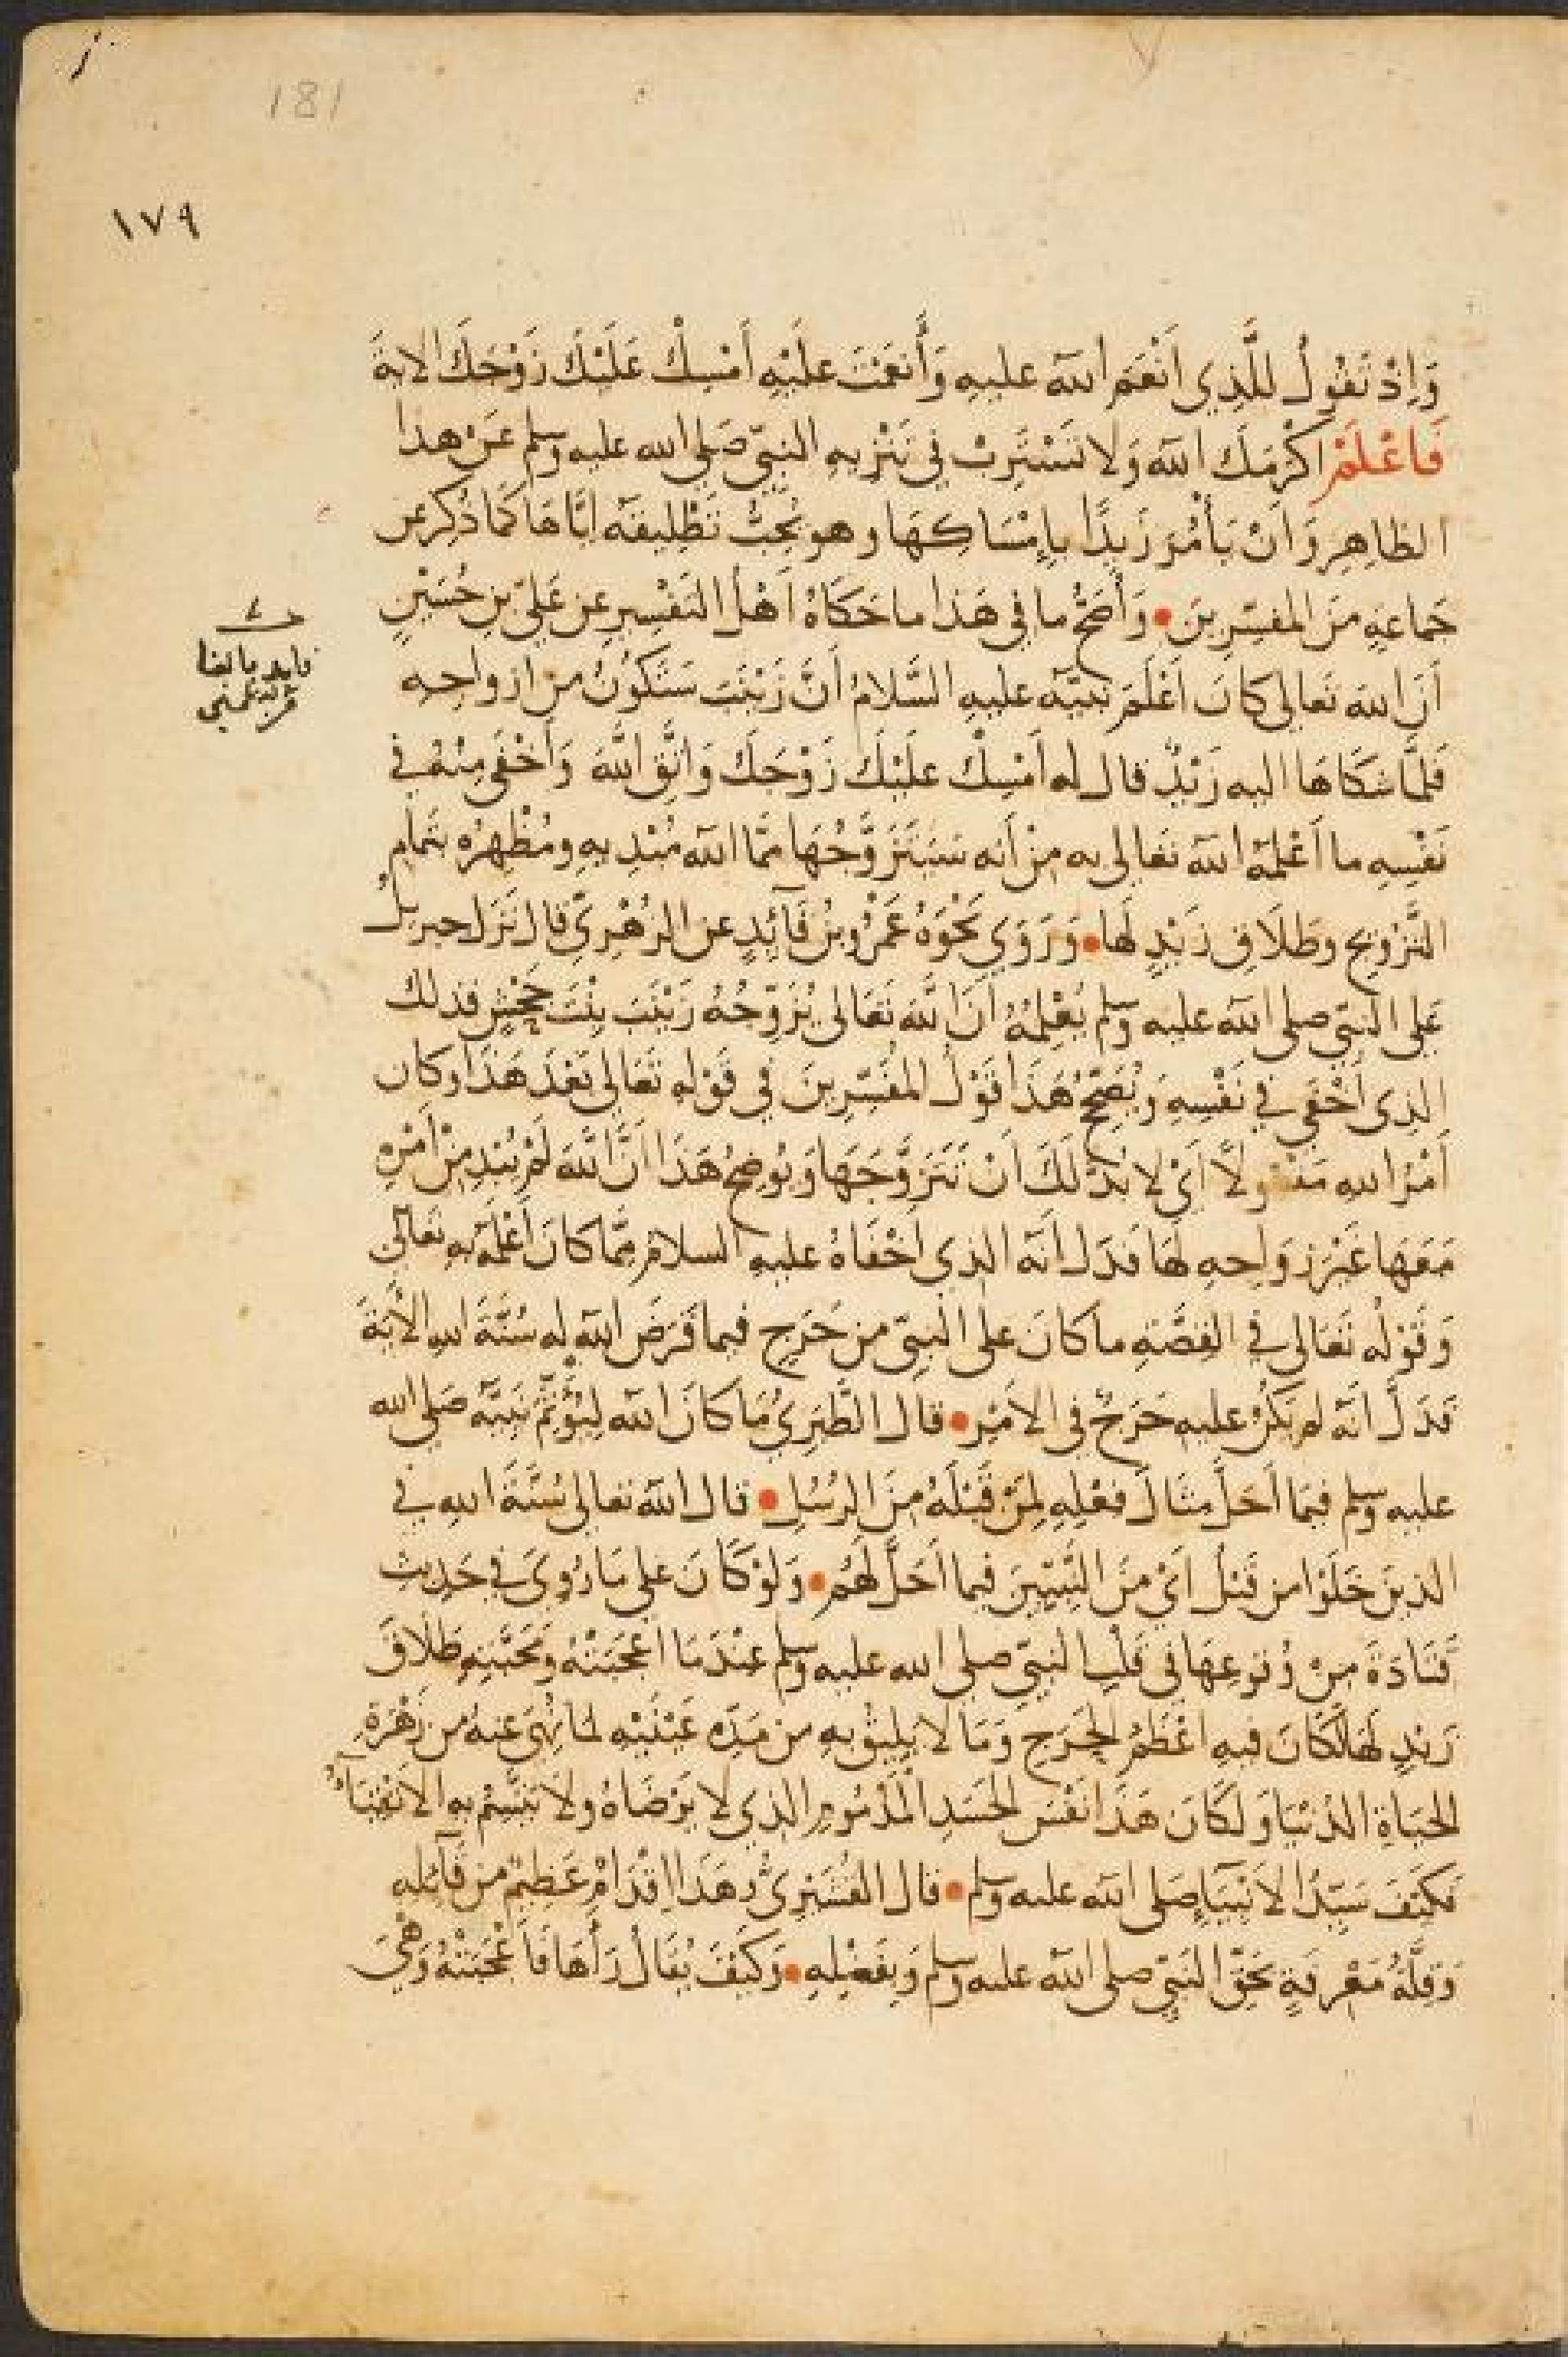 181
١٧٩
وَإِذْ تَقُولُ لِلَّذِي أَنْعَمَ اللَّه عليهِ وَأَنعَمْتَ علَيْهِ أَمْسِكْ عَلَيْكَ زَوْجَكَ الايةَ
فَاعْلَمْ أَكْرَمَكَ اللَّه وَلا تَسْتَرِبْ في تَنْزِيهِ النبيّ صَلى الله عليه وسلم عَنْ هذا
الظاهِرِ وَأَنْ يَأْمُرَ زَيدًا بِإِمْسَاكِهَا وهو يُحِبُّ تَطْلِيقَهُ إيَّاهَا كَمَا ذُكِرَ عن
جَماعَةٍ مِنَ المفسِّرِينَ وَأَصَحُّ ما في هَذا ما حَكَاهُ أَهْلُ التَفْسِيرِ عن عَليّ بنِ حُسَيْنٍ
أَنَّ الله تَعالى كَانَ أَعْلَمَ نبيّه عليهِ السَّلامُ أَنَّ زَيْنَبَ سَتَكُونُ من ازواجِهِ
فَلَمَّا شكَاهَا اليه زَيْدٌ قال له أَمْسِكْ علَيْكَ زَوْجَكَ وَاتَّقِ اللَّهَ وَأَخْفَى مِنْهُ في
نَفْسِهِ ما أَعْلَمَهُ اللَّه تَعالى به مِنْ أنه سَيَتَزَوَّجُهَا مِمَّا اللَّه مُبْدِيهِ ومُظْهِرُه بتَمامِ
التَّزْوِيجِ وطَلَاقِ زَيْدٍ لَها وَرَوَى نَحْوَهُ عَمْرُو بنُ فَآئِدٍ عن الزُهْرِيّ قال نَزَل جبريلُ
عَلى النبيّ صلى اللَّه عليه وسلم يُعْلِمُهُ أنَّ اللَّهَ تَعَالى يُزَوِّجُهُ زَيْنَبَ بِنْتَ جَحْشٍ فذلك
الذِى أَخْفَى في نَفْسِهِ وَيُصَحِّحُ هَذَا قَوْلُ المُفَسِّرِينَ في قَوْله تَعَالى بَعْدَ هَذَا وكان
أَمْرُ اللهِ مَفْعُولاً أَىْ لا بُدَّ لَكَ أنْ تَتَزَوَّجَهَا وَيُوضِحُ هَذَا أنَّ اللَّهَ لَمْ يُبْدِ مِنْ أَمْرِهِ
مَعَهَا غَيْرَ زَوَاجِهِ لَهَا فَدَلَّ أَنَّه الذِي أَخْفَاهُ عليهِ السلامُ مِمَّا كَانَ أَعْلَمَهُ به تَعَالَى
وَقَوْلُه تَعَالى في القِصَّةِ ما كَانَ عَلى النَبيّ مِن حَرَجٍ فيما فَرَضَ اللَّه له سُنَّةَ اللهِ الآيَةَ
فَدَلَّ أَنَّهُ لم يَكُنْ عليهِ حَرَجٌ في الأَمْرِ قال الطَّبَرِيُّ مَا كَانَ اللَّه ليُؤَثِّمَ نَبيَّه صَلى الله
عليه وسلم فيمَا أَحَلَّ مِثَالَ فِعْلِهِ لِمَنْ قَبْلَهُ مِنَ الرُسُلِ قال اللَّه تعالى سُنَّةَ اللهِ في
الذينَ خَلَوْا من قَبْلُ أَيْ مِنَ النَّبيّينَ فيما أَحَلَّ لَهُم وَلَوْ كَانَ على مَا رُوِيَ في حَدِيثِ
قَتَادَةَ مِنْ وُقُوعِهَا في قَلْبِ النَبيّ صلى الله عليه وسلم عِنْدَمَا أَعْجَبَتْهُ وَمَحَبَّتِهِ طَلَاقَ
زَيْدٍ لَهَا لَكَانَ فيهِ أَعْظَمُ الحَرَجِ وَمَا لا يَلِيقُ بهِ من مَدِّه عَيْنَيْهِ لِمَا نُهِيَ عنهُ من زَهْرَةِ
الحَيَاةِ الدُنْيَا وَلَكَانَ هَذَا نَفْسَ الحَسَدِ المَذْمُومِ الذِي لا يَرْضَاهُ ولا يَتَّسِمُ بهِ الاَتْقِيَاءُ
فَكَيْفَ سَيِّدُ الاَنْبِيَآءِ صَلى اللَّه عليه وسلم قال القُشَيْرِيُّ وهَذَا إقْدَامٌ عَظِيْمٌ من قَآئِلِهِ
وَقِلَّةُ مَعْرِفَةٍ بحَقِّ النَبيّ صلى اللَّه عليه وسلم وَبِفَضْلِهِ وَكَيْفَ يُقَالُ رَأَهَا فَأَعْجَبَتْهُ وَهْيَ